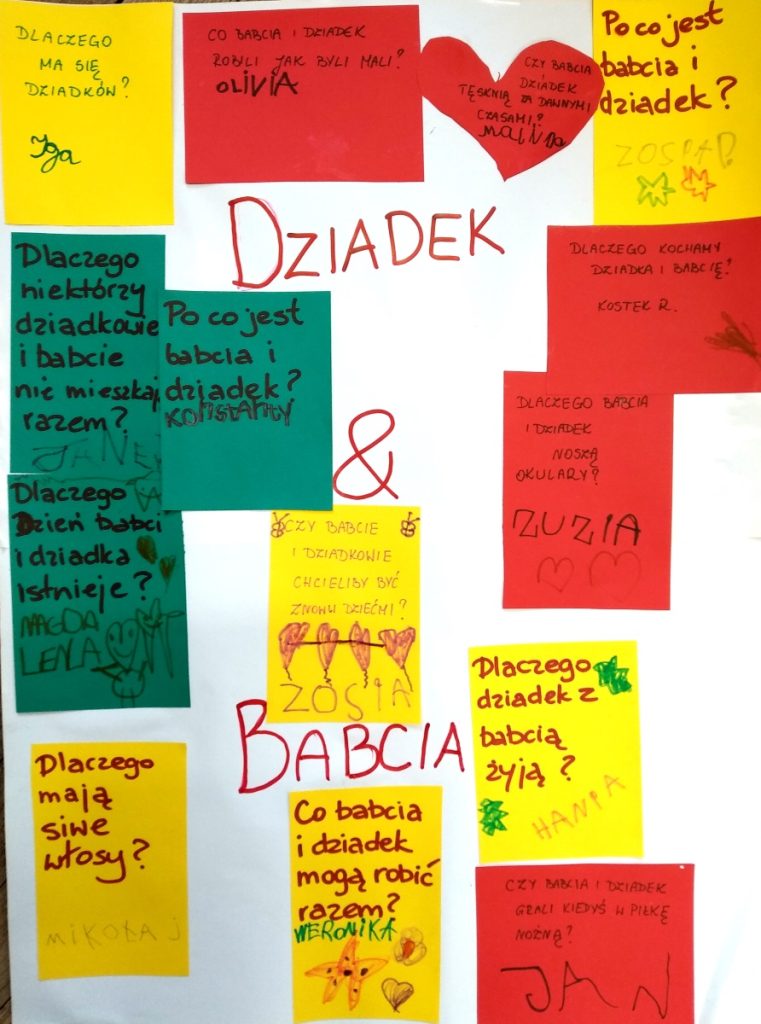 DLACZEGO
MA SIĘ
DZIADKÓW?
Iga
CO BABCIA I DZIADEK
ROBILI JAK BYLI MALI?
OLIVIA
CZY BABCIA
DZIADEK
TĘSKNIĄ ZA DAWNYMI
CZASAMI?
MALINA
Po co jest
babcia i
dziadek?
DZIADEK
Dlaczego
niektórzy
dziadkowie
i babcie
nie mieszkaj
razem?
Po co jest
babcia i
dziadek?
KONSTANTY
DLACZEGO KOCHAMY
DZIADKA I BABCIĘ?
KOSTEK R.
DLACZEGO BABCIA
I DZIADEK
NOSZĄ
OKULARY?
ZUZIA
&
Dlaczego
Dzień babci
i dziadka
istnieje?
MAGDA
LENA
CZY BABCIE
I DZIADKOWIE
CHCIELIBY BYĆ
ZNOWU DZIEĆMI?
ZOSIA
Dlaczego
dziadek z
babcią
żyją?
HANIA
BABCIA
Dlaczego
mają
siwe
włosy?
MIKOŁAJ
Co babcia
i dziadek
mogą robić
razem?
WERONIKA
CZY BABCIA I DZIADEK
GRALI KIEDYŚ W PIŁKĘ
NOŻNĄ?
JAN